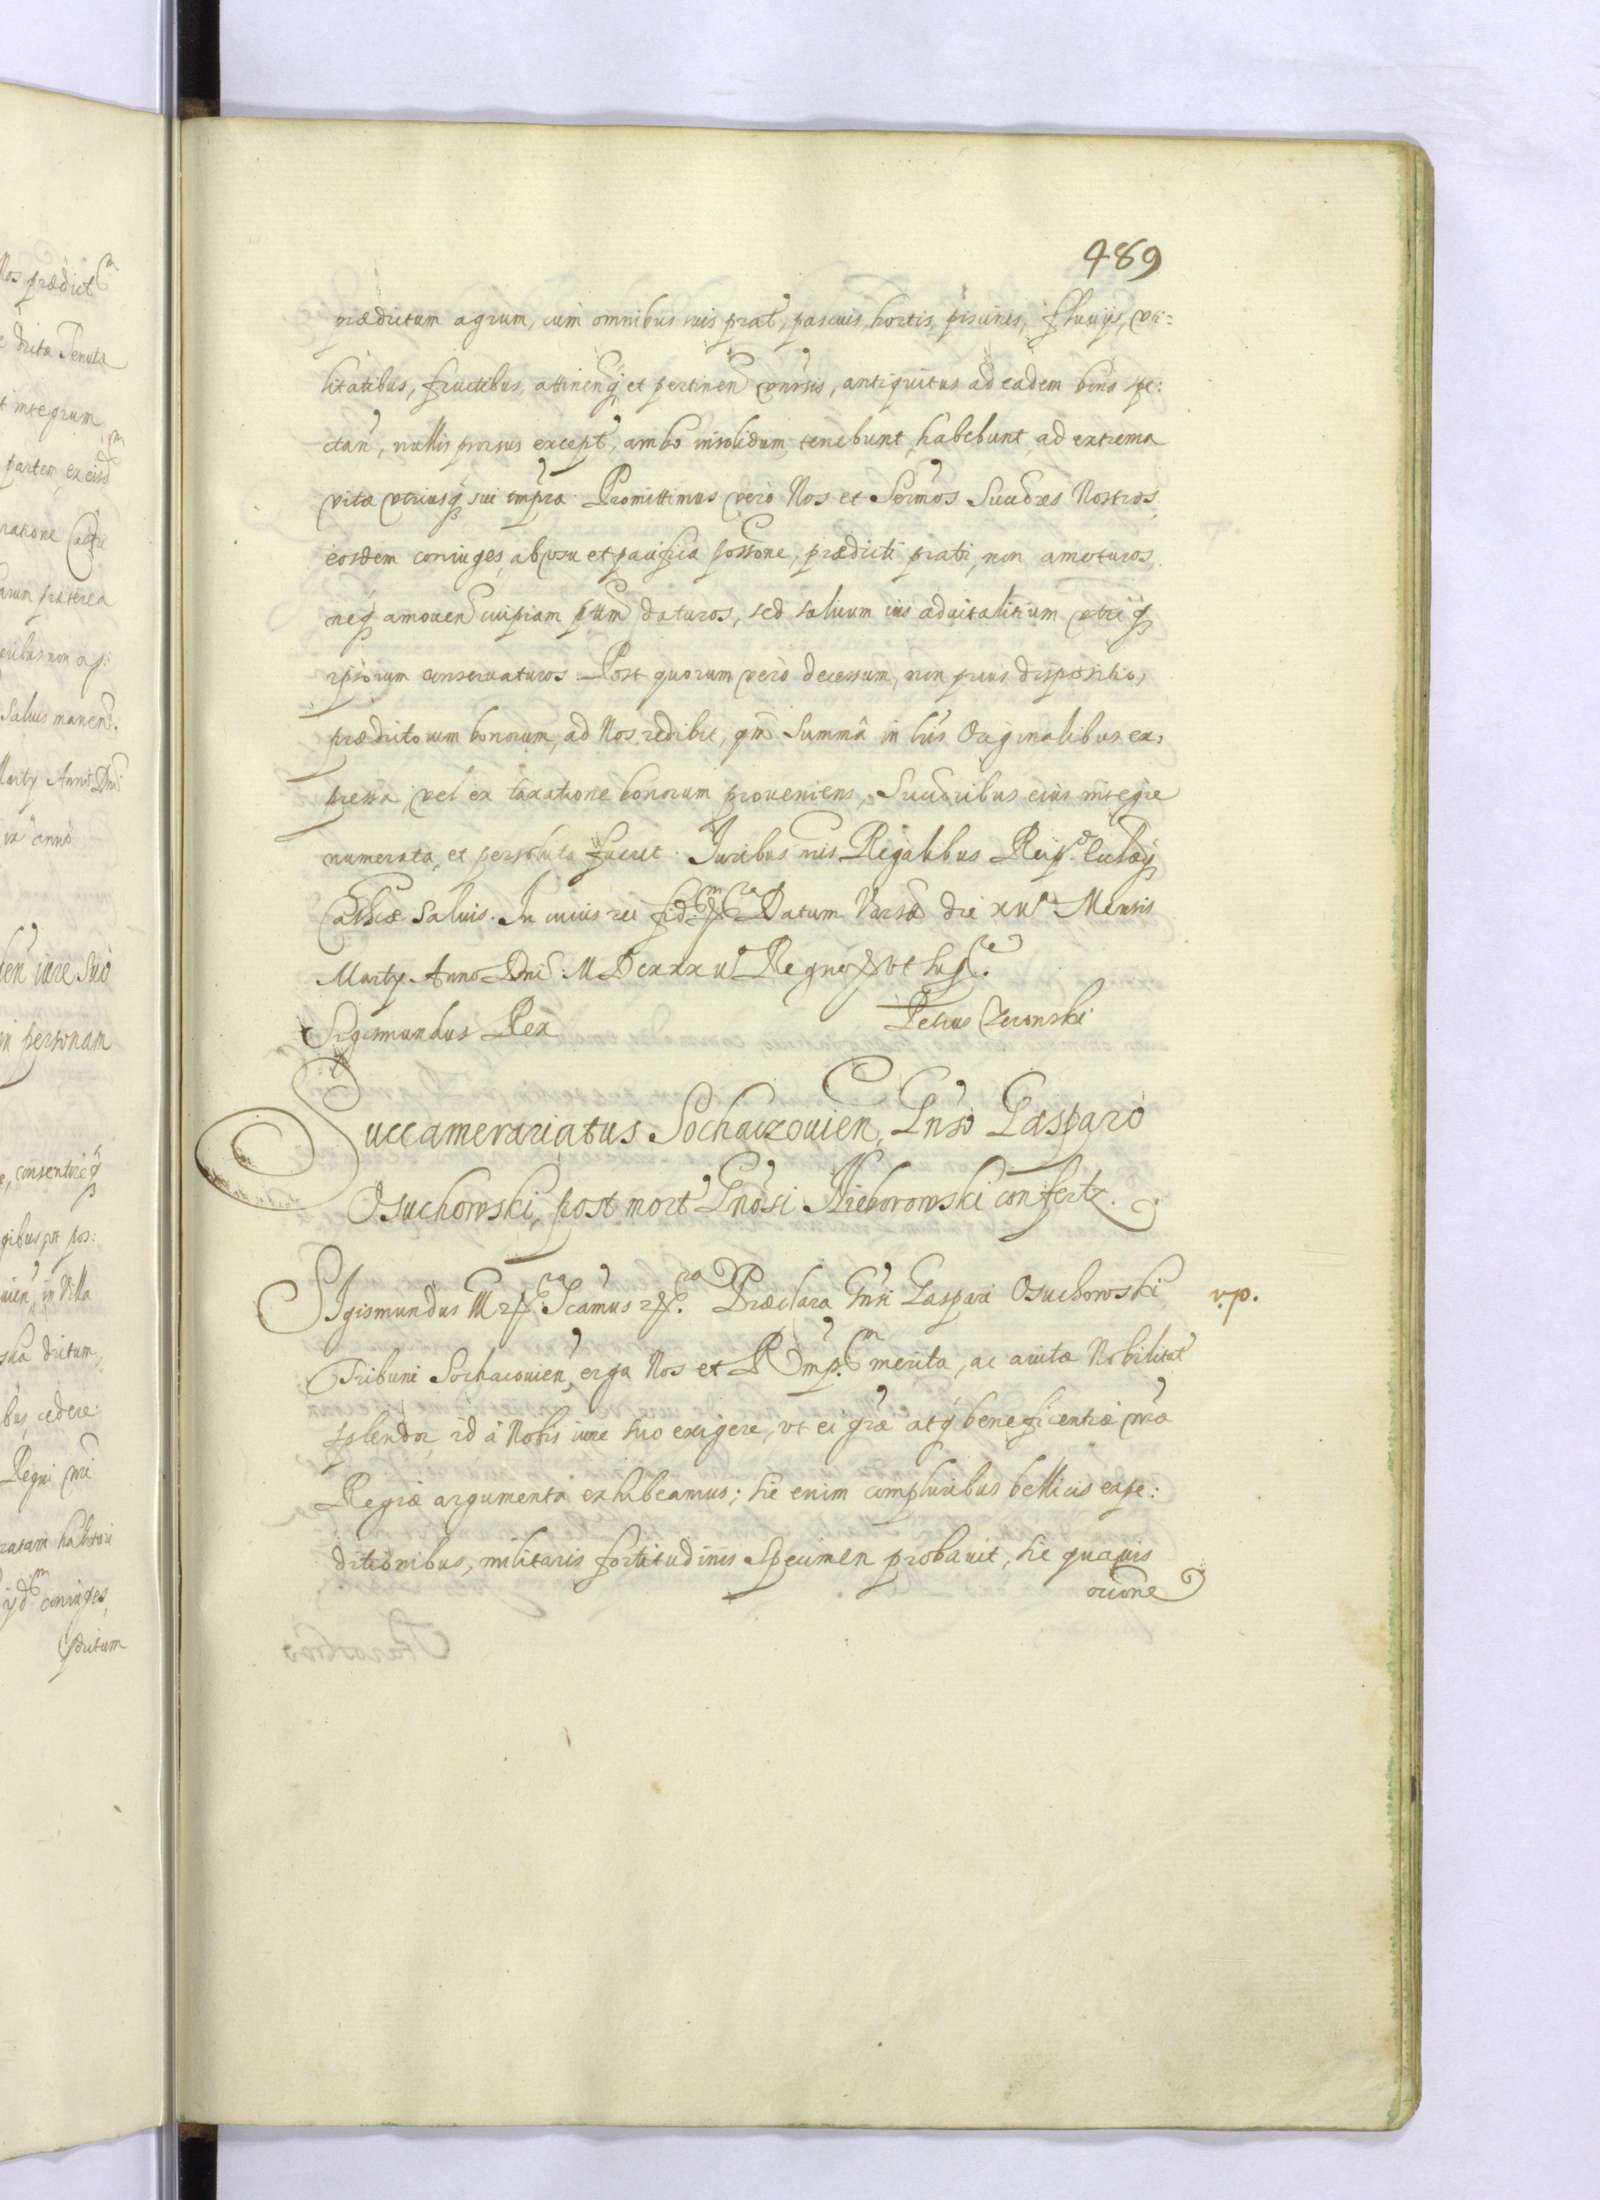 489
prædictum agrum, cum omnibus suis prat, pascuis, hortis, piscinis, fluuijs, vti=
litatibus, fructibus, attinen q et pertinen vniuersis, antiquitus ad eadem bona spe:
ctan, nullis prorsus except, ambo insolidum, tenebunt, habebunt, ad extrema
vitæ vtriusq sui tmpra. Promittimus vero Nos et Sermos Succres Nostros,
eosdem coniuges, ab vsu et pacifica possone, prædicti prati, non amoturos,
neq amouen cuipiam pttm daturos, sed saluum ius aduitalitium vtriq
ipsorum conseruaturos. Post quorum vero decessum, non prius dispositio,
prædictorum bonorum, ad Nos redibit, qm Summa in lris Originalibus ex,
pressa, vel ex taxatione bonorum proueniens, Succribus eius integre
numerata, et persoluta fuerit. Iuribus nris Regalibus Reip. Eccliæq
Cathcæ Saluis. In cuius rei fid. Datum Varsæ die XVa Mensis
Martij Anno Dni MDCXXX Regnor vt supra.
Sigismundus Rex Petrus
Succamerariatus Sochaczouien, Gnso Gasparo
Osuchowski, post mort Gnosi Nieborowski confertz.
SIgismundus III Præclara Gnsi Gaspari Osuchowski v.p.
Tribuni Sochacouien, erga Nos et Remp. merita, ac auitæ Nobilitat
splendor id à Nobis iure suo exigere, vt ei græ atq beneficentiæ nræ
Regiæ argumenta exhibeamus; hic enim compluribus bellicis expe:
ditionibus, militaris fortitudinis Specimen probauit, hic quauis